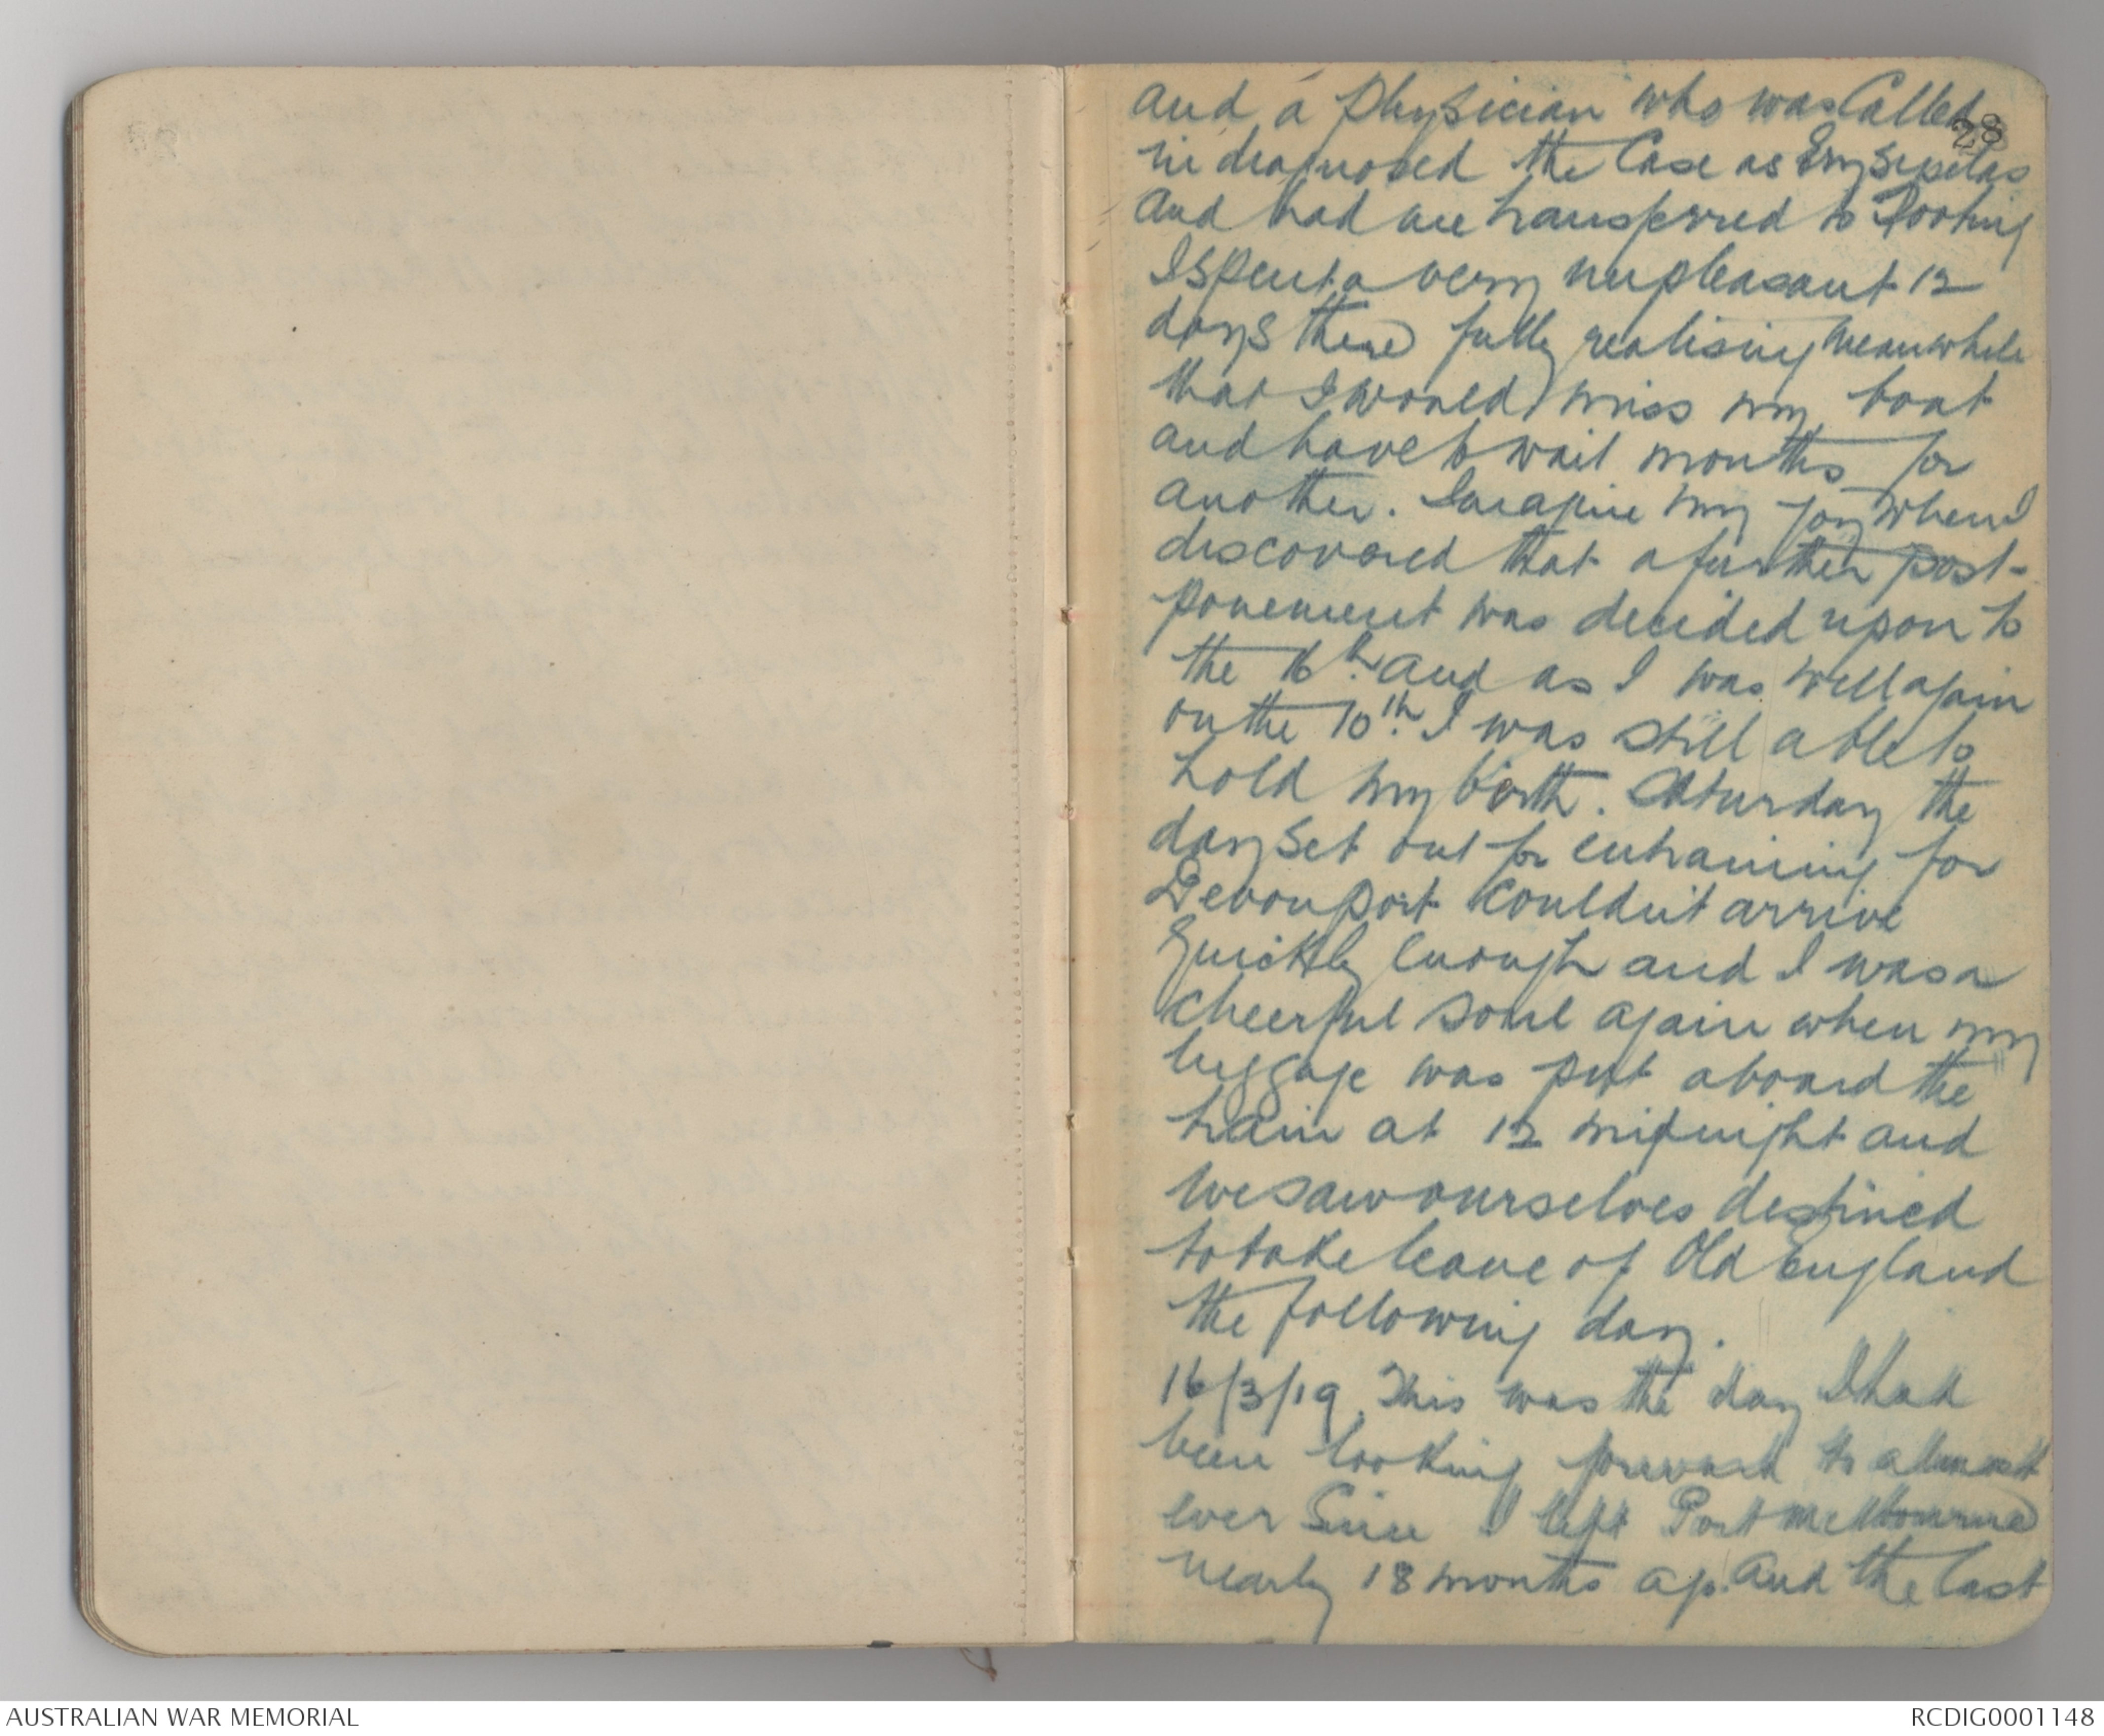 28
and a physician who was Called
in diagnosed the Case as Erysipelas
and had me transferred to Tooting
I spent a very unpleasant 12
days there fully realising meanwhile
that I would miss my boat
and have to wait months for
another. Imagine my joy when I
discovered that a further post-
ponement was decided upon to
the 16th. and as I was well again
on the 10th. I was still able to
hold my birth. Saturday the
day set out for entraining for
Devonport couldn't arrive
quickly enough and I was a
cheerful soul again when my
luggage was put aboard the
train at 12 midnight and
we saw ourselves destined
to take leave of Old England
the following day.
16/3/19. This was the day I had
been looking forward to almost
ever Since I left Port Melbourne
nearly 18 months ago. and the last
AUSTRALIAN WAR MEMORIAL
RCDIG0001148